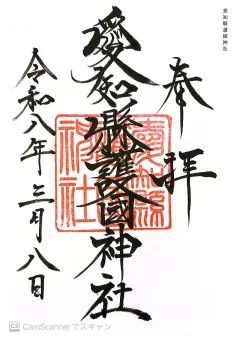 愛知縣護國神社
奉拝
愛知縣護國神社
令和八年三月八日
愛知縣護國神社
CS CamScannerでスキャン